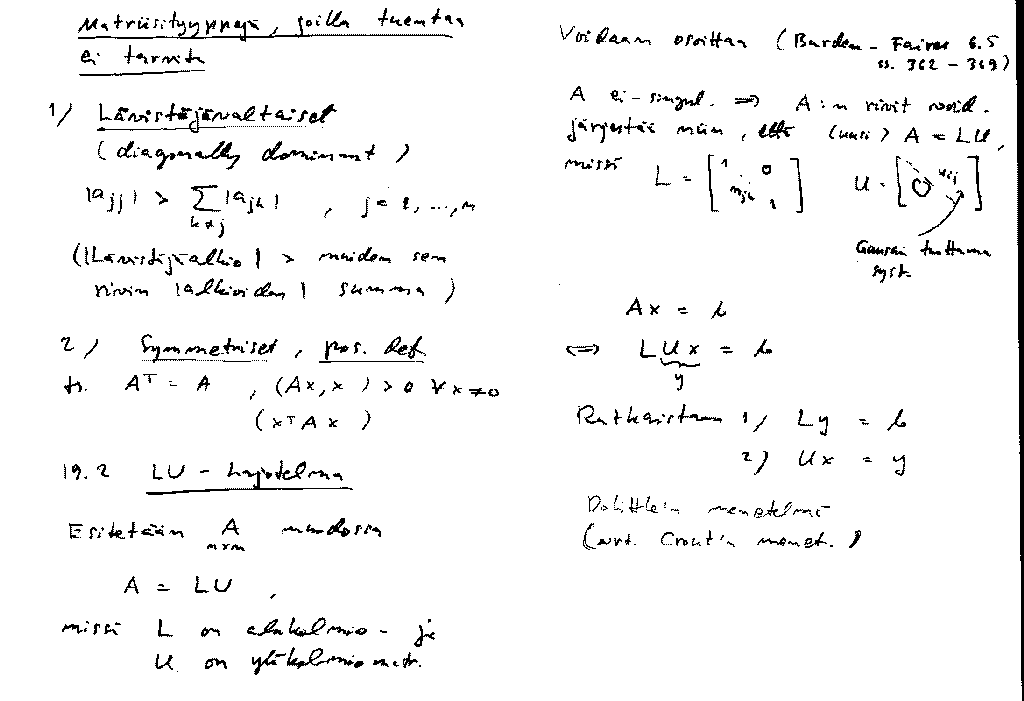 Matriisityyppejä, joilla tuentaa
ei tarvita
1) Lävistäjävaltaiset
(diagonally dominant)
|a_jj| > Σ_{k≠j} |a_jk| , j = 1, ..., n
(|Lävistäjäalkio| > muiden sen
rivin |alkioiden| summa)
2) Symmetriset, pos. def.
ts. A^T = A , (Ax, x) > 0 ∀ x ≠ 0
(x^T A x)
19.2 LU - hajotelma
Esitetään A muodossa
n×n
A = LU ,
missä L on alakolmio - ja
U on yläkolmiomatr.
Voidaan osoittaa (Burden - Faires 6.5
ss. 362 - 369)
A ei-singul. ⇒ A:n rivit void.
järjestää niin, että (uusi) A = LU,
missä L = [1 0 m_jk 1] U = [0 u_ij]
Gaussin tuottama
syst.
Ax = b
⇔ LUx = b
y
Ratkaistaan 1) Ly = b
2) Ux = y
Dolittle'n menetelmä
(vrt. Crout'n menet.)